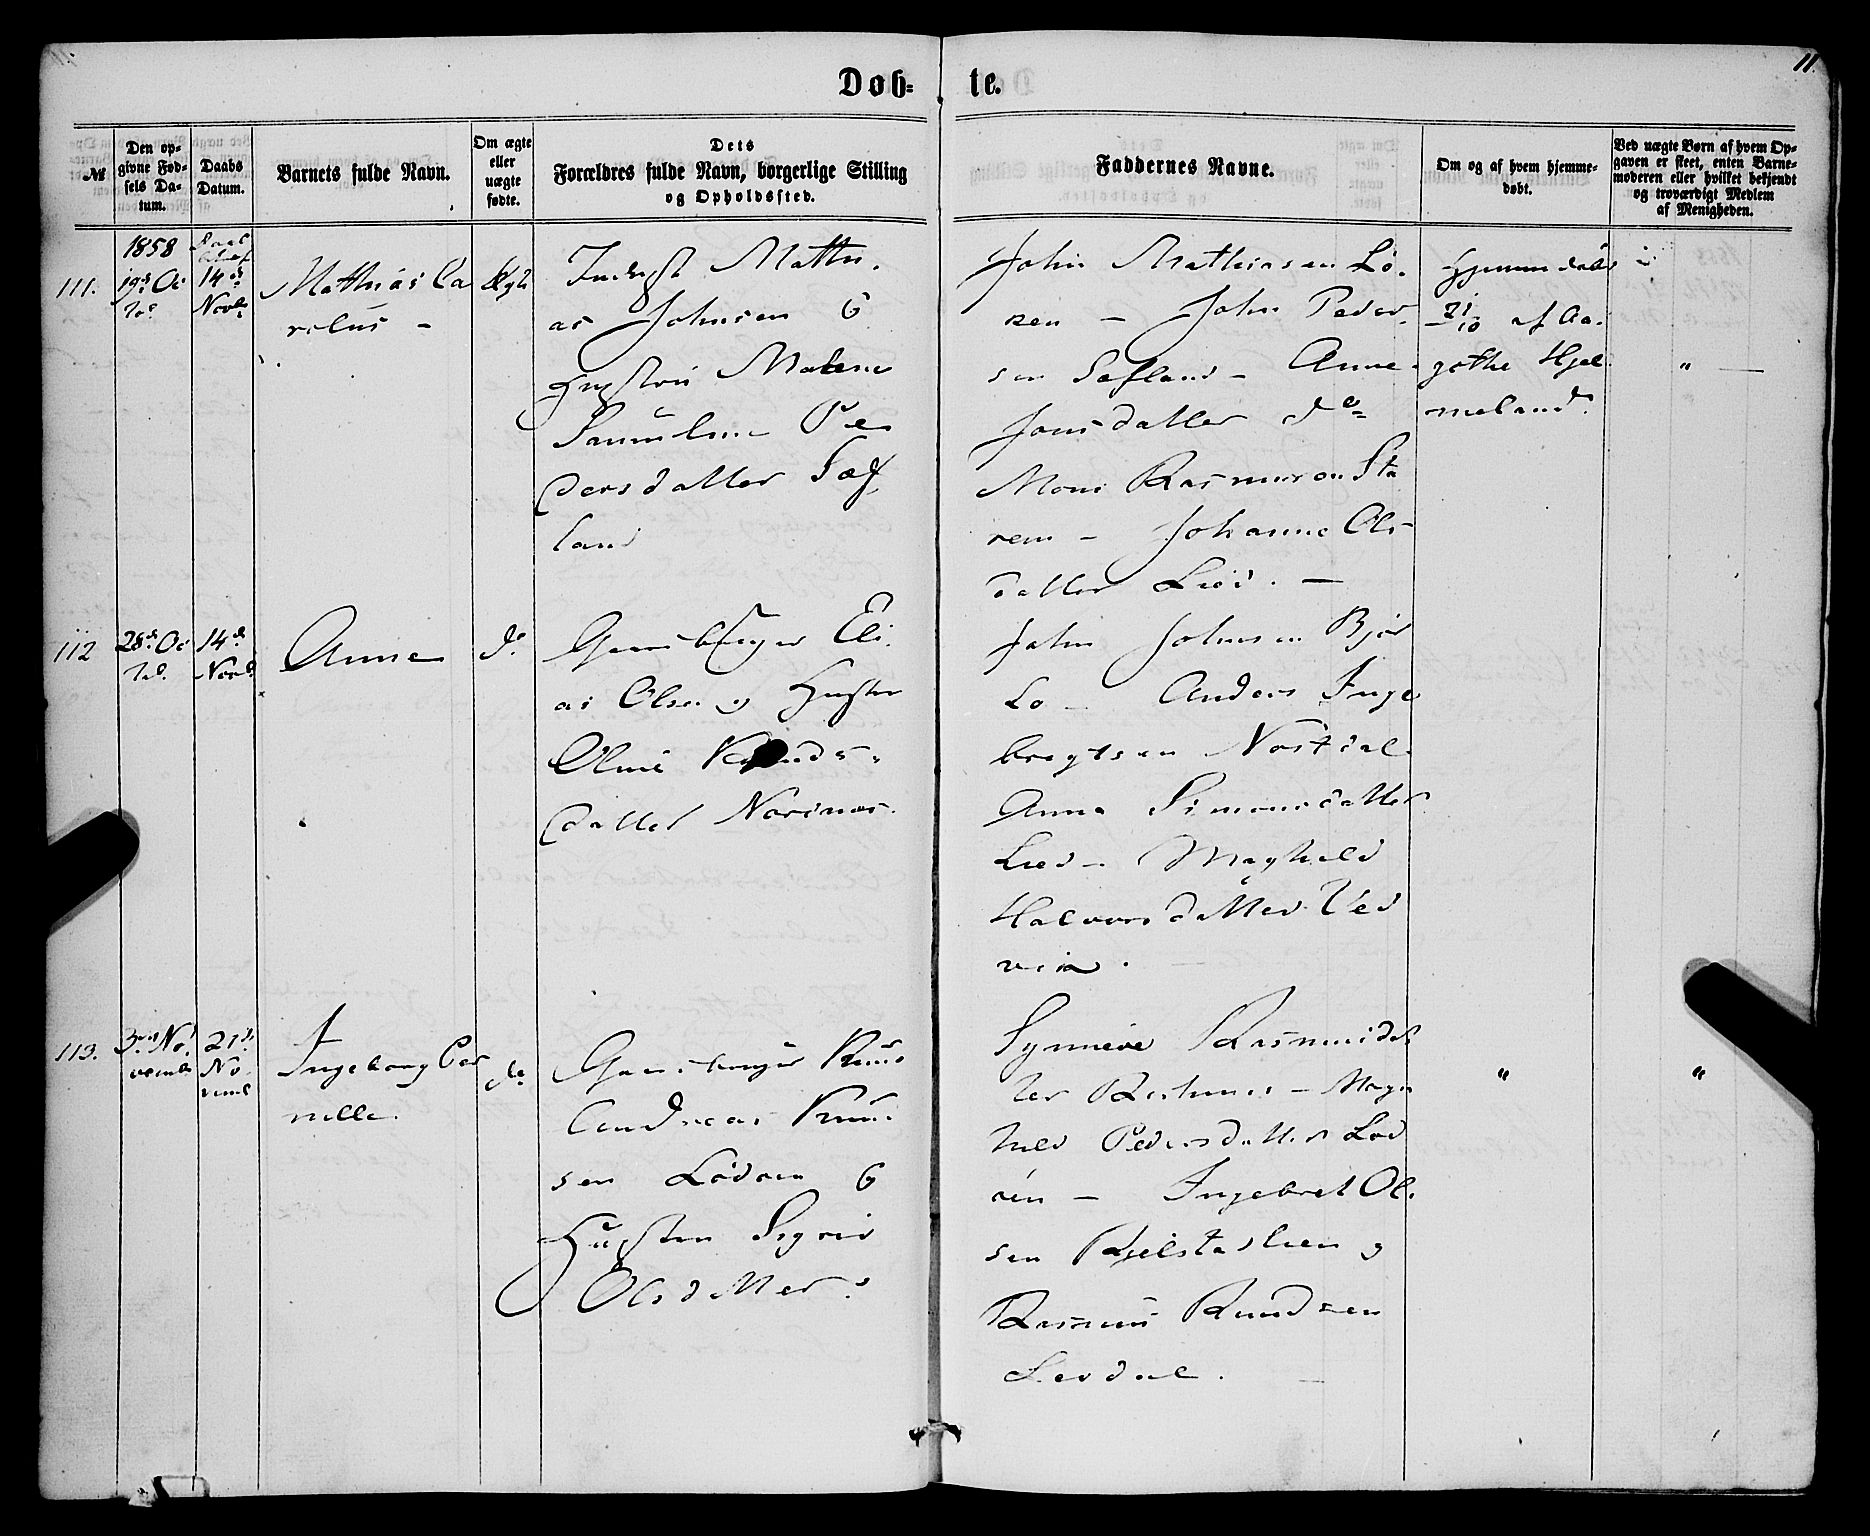 11.
Døb-
te.
№
Den op-
givne Fød-
sels Da-
tum.
Daabs
Datum.
Barnets fulde Navn.
Om ægte
eller
uægte
fødte.
Dets
Forældres fulde Navn, borgerlige Stilling
og Opholdssted.
Faddernes Navne.
Om og af hvem hjemme-
døbt.
Ved uægte Børn af hvem Op-
gaven er skeet, enten Barne-
moderen eller hvilket bekjendt
og troværdigt Medlem
af Menigheden.
111.
1858
19de Oc
tob.
14de
Novb.
Mathias Ca
rolus -
Ægte
Inderst Mathi-
as Johnsen &
Hustru Malene
Samuline Pe
dersdatter Sæf
land
John Mathiasen Lø-
ren - John Peder-
sen Sæfland - Anne
Jonsdatter do
Mons Rasmussen Sta
rem - Johanne Ols
datter Lied. -
Hjemmedøbt
21/10 af Aa-
gothe Hjel
meland.
" -
112
28de Oc
tob.
14de
Novb.
Anne
do
Gaardbruger Eli
as Olsen og Hustru
Oline Knuds-
datter Norinæs.
John Johnsen Bjør
lo - Anders Inge
brigtsen Nostdal
Anna Simonsdatter
Lied - Maghild
Halvorsdatter Ved
vik.
113.
3die No
vemb
21de
No
vemb
Ingeborg Per
nelle.
do
Gaardbruger Knud
Andreas Knud
sen Lødøen &
Hustru Sigrid
Olsdatter.
Synneve Rasmusdat
ter - Mag
hild Pedersdatter Lød
øen - Ingebret Ol-
sen og
Rasmus Knudsen
Leirdal.
"
"